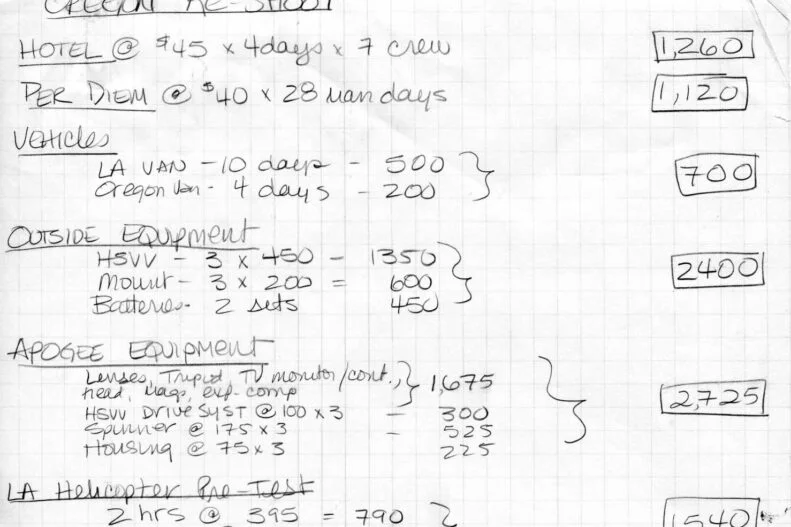 OREGON RE-SHOOT
HOTEL @ $45 x 4 days x 7 crew 1,260
PER DIEM @ $40 x 28 man days 1,120
Vehicles
LA VAN - 10 days - 500
Oregon Van - 4 days - 200 700
OUTSIDE EQUIPMENT
HSVV - 3 x 450 - 1350
Mount - 3 x 200 = 600 2400
Batteries - 2 sets 450
APOGEE EQUIPMENT
Lenses, Tripod, TV monitor/cont., 1,675
head, mags, exp. comp
HSVV DRIVE SYST @ 100 x 3 - 300 2,725
Spinner @ 175 x 3 - 525
Housing @ 75 x 3 225
LA Helicopter Pre-Test
2 hrs @ 395 = 790 1540